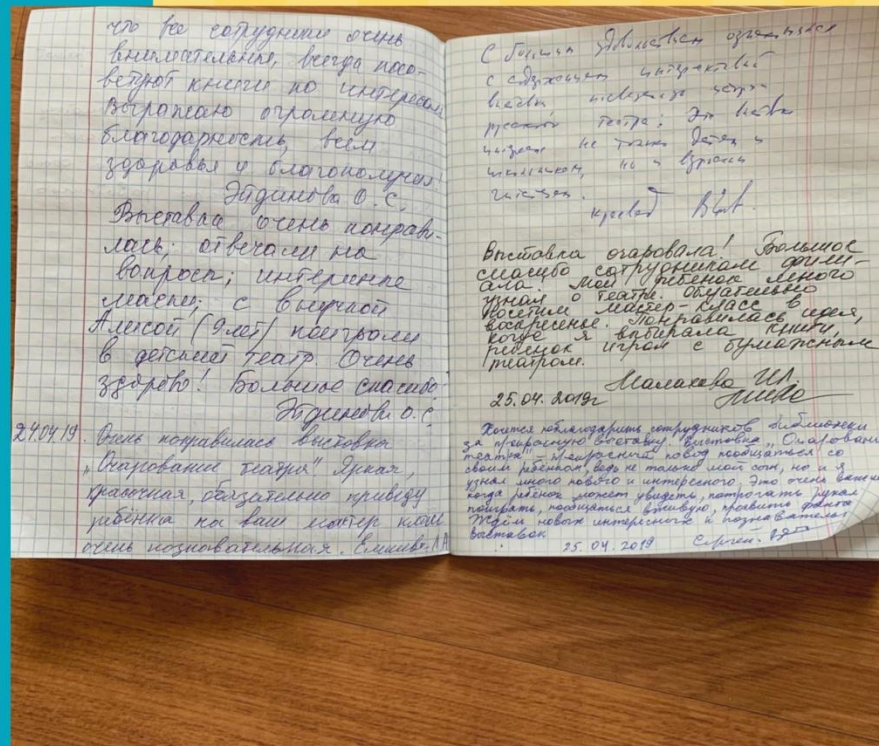 что все сотрудники очень
внимательные, всегда посо-
ветуют книги по интересам
Выражаю огромную
благодарность, всем
здоровья и благополучия!
Эйдинова О.С.
Выставка очень понрави-
лась; отвечали на
вопросы; интересные
маски; с внучкой
Алисой (9 лет) поиграли
в детский театр. Очень
здорово! Большое спасибо
Эйдинова О.С.
24.04.19. Очень понравилась выставка
„Очарование театра" Яркая,
красочная, обязательно приведу
ребёнка на ваш мастер класс
очень познавательная.
С большим удовольствием
с содержанием интерактивной
русского театра: Эта выставка
не только детям и
школьникам, но и взрослым
Выставка очаровала! Большое
спасибо сотрудникам фили-
ала. Мой ребёнок много
узнал о театре. Обязательно
посетим мастер-класс в
воскресенье. Понравилась идея,
когда я выбирала книги,
ребёнок играл с бумажным
театром.
25.04.2019г Малахова
Хочется поблагодарить сотрудников библиотеки
за прекрасную выставку. Выставка „Очарование
театра" – прекрасный повод пообщаться со
своим ребёнком, ведь не только мой сын, но и я
узнал много нового и интересного. Это очень важно
когда ребёнок может увидеть, потрогать руками
поиграть, пообщаться вживую, проявить
Ждём новых интересных и познавательных
выставок
25.04.2019 Сергей.